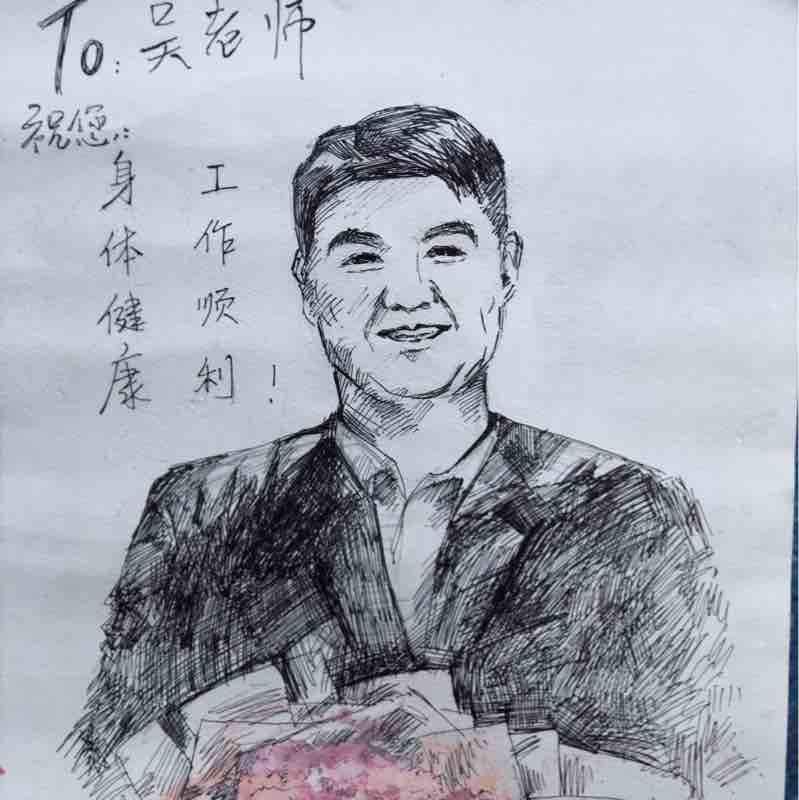 To:吴老师
祝您:
身体健康
工作顺利!